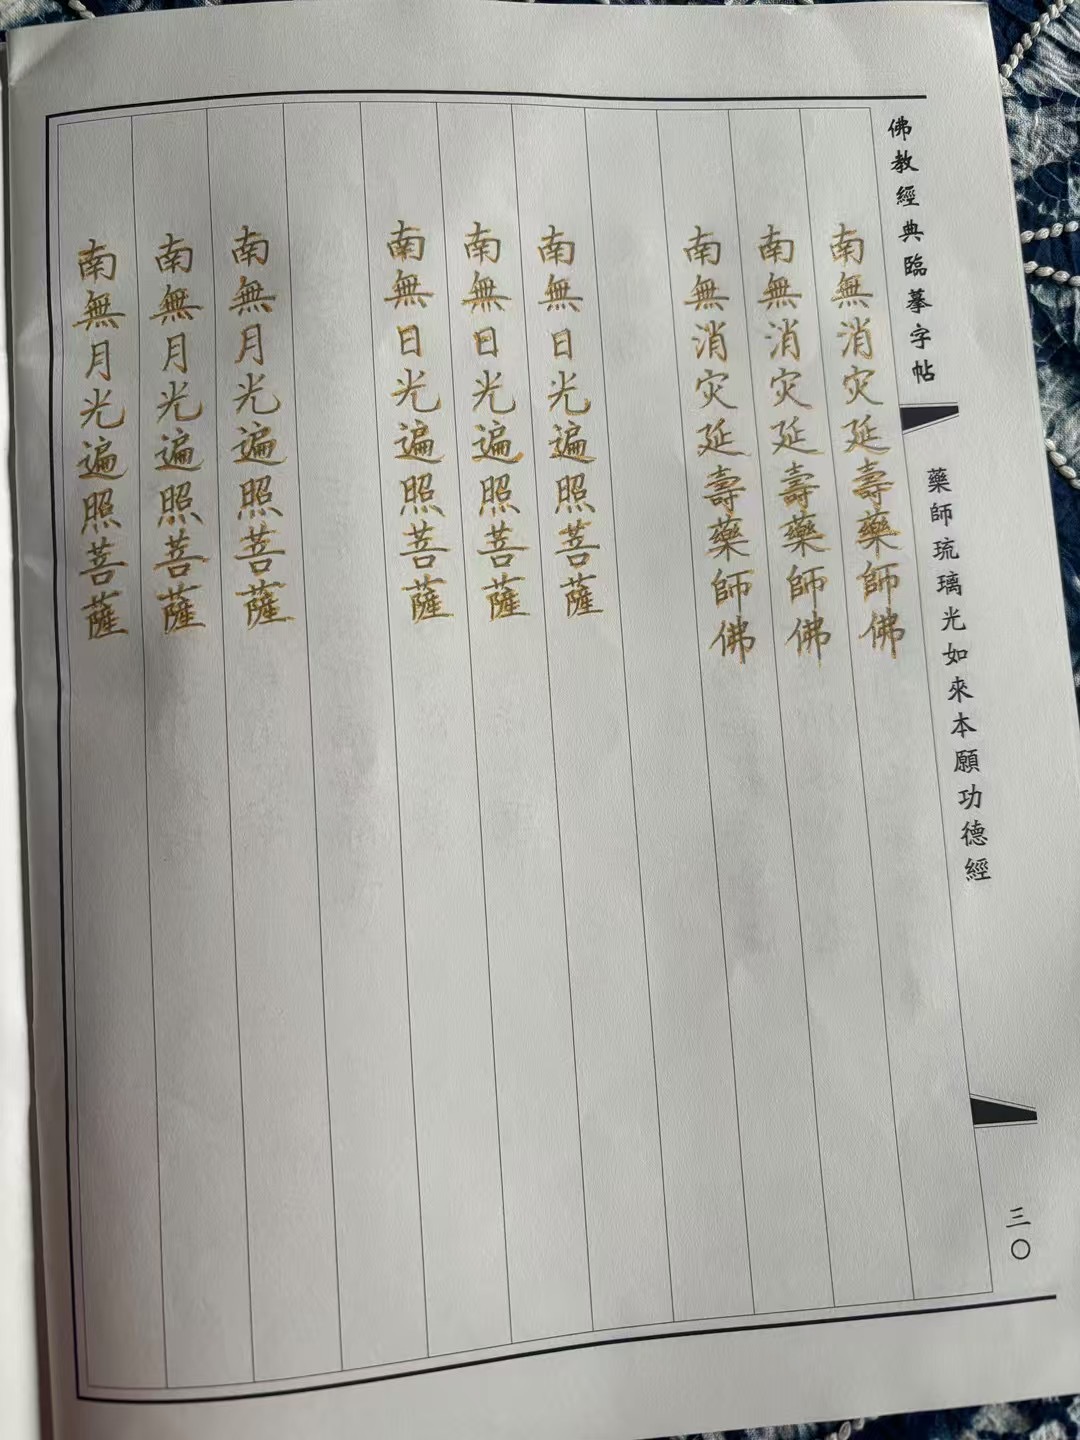 佛教經典臨摹字帖
藥師琉璃光如來本願功德經
三〇
南無消灾延壽藥師佛
南無消灾延壽藥師佛
南無消灾延壽藥師佛
南無日光遍照菩薩
南無日光遍照菩薩
南無日光遍照菩薩
南無月光遍照菩薩
南無月光遍照菩薩
南無月光遍照菩薩